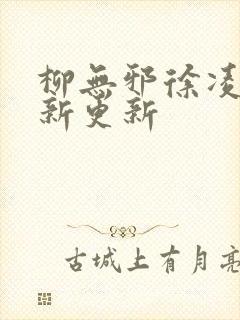 柳無邪徐凌
新更新
古城上有月亮